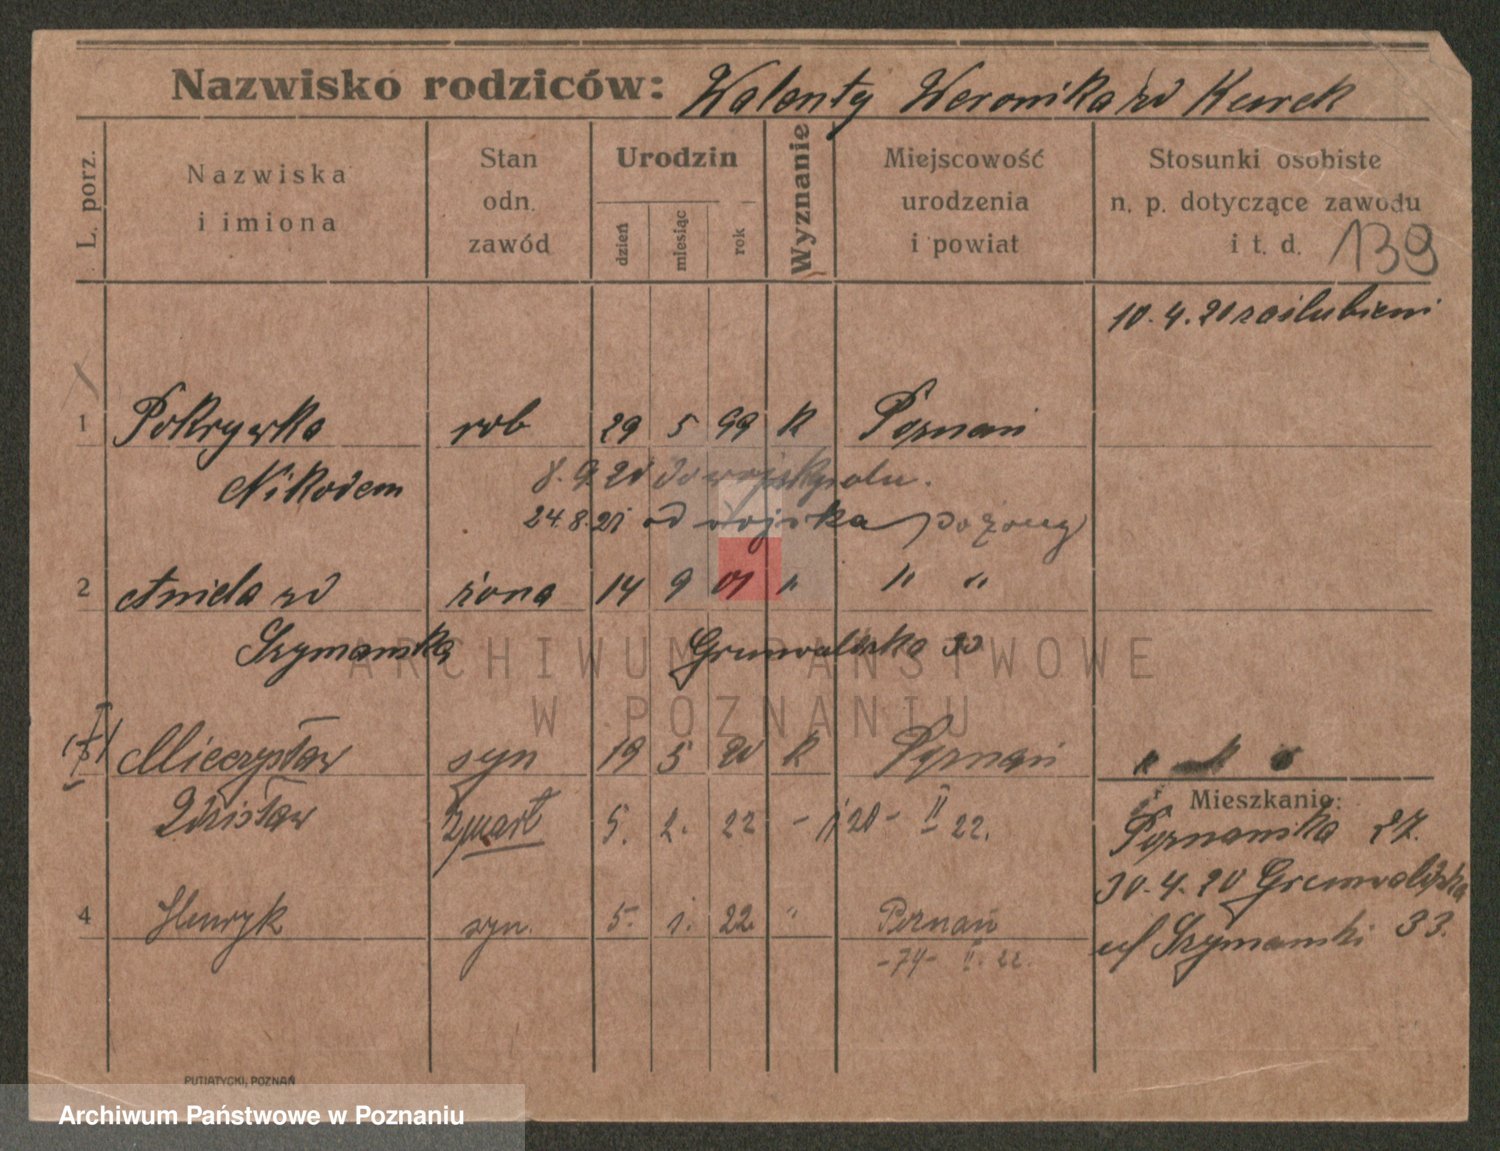 Nazwisko rodziców: Walenty Weronika zd Kurek
L. porz.
Nazwiska
i imiona
Stan
odn.
zawód
Urodzin
dzień
miesiąc
rok
Wyznanie
Miejscowość
urodzenia
i powiat
Stosunki osobiste
n. p. dotyczące zawodu
i t. d. 139
10.4.20 zaślubieni
1 Pokrywka rob 29 5 99 k Poznań
Nikodem 8.9.20 do wojsk
24.8.21 od wojska
2 Aniela zd żona 14 9 01 " " "
Szymańska Grunwaldzka 33
Mieczysław syn 19 5 20 k Poznań
Mieszkanie:
Zdzisław zmarł 5. 2. 22 - 20- II 22.
Poznańska 27.
30.4.20 Grunwaldzka
4 Henryk syn. 5. 1. 22. " Poznań
Szymański 33.
-74- II. 22.
PUTIATYCKI, POZNAŃ
ARCHIWUM PAŃSTWOWE
W POZNANIU
Archiwum Państwowe w Poznaniu